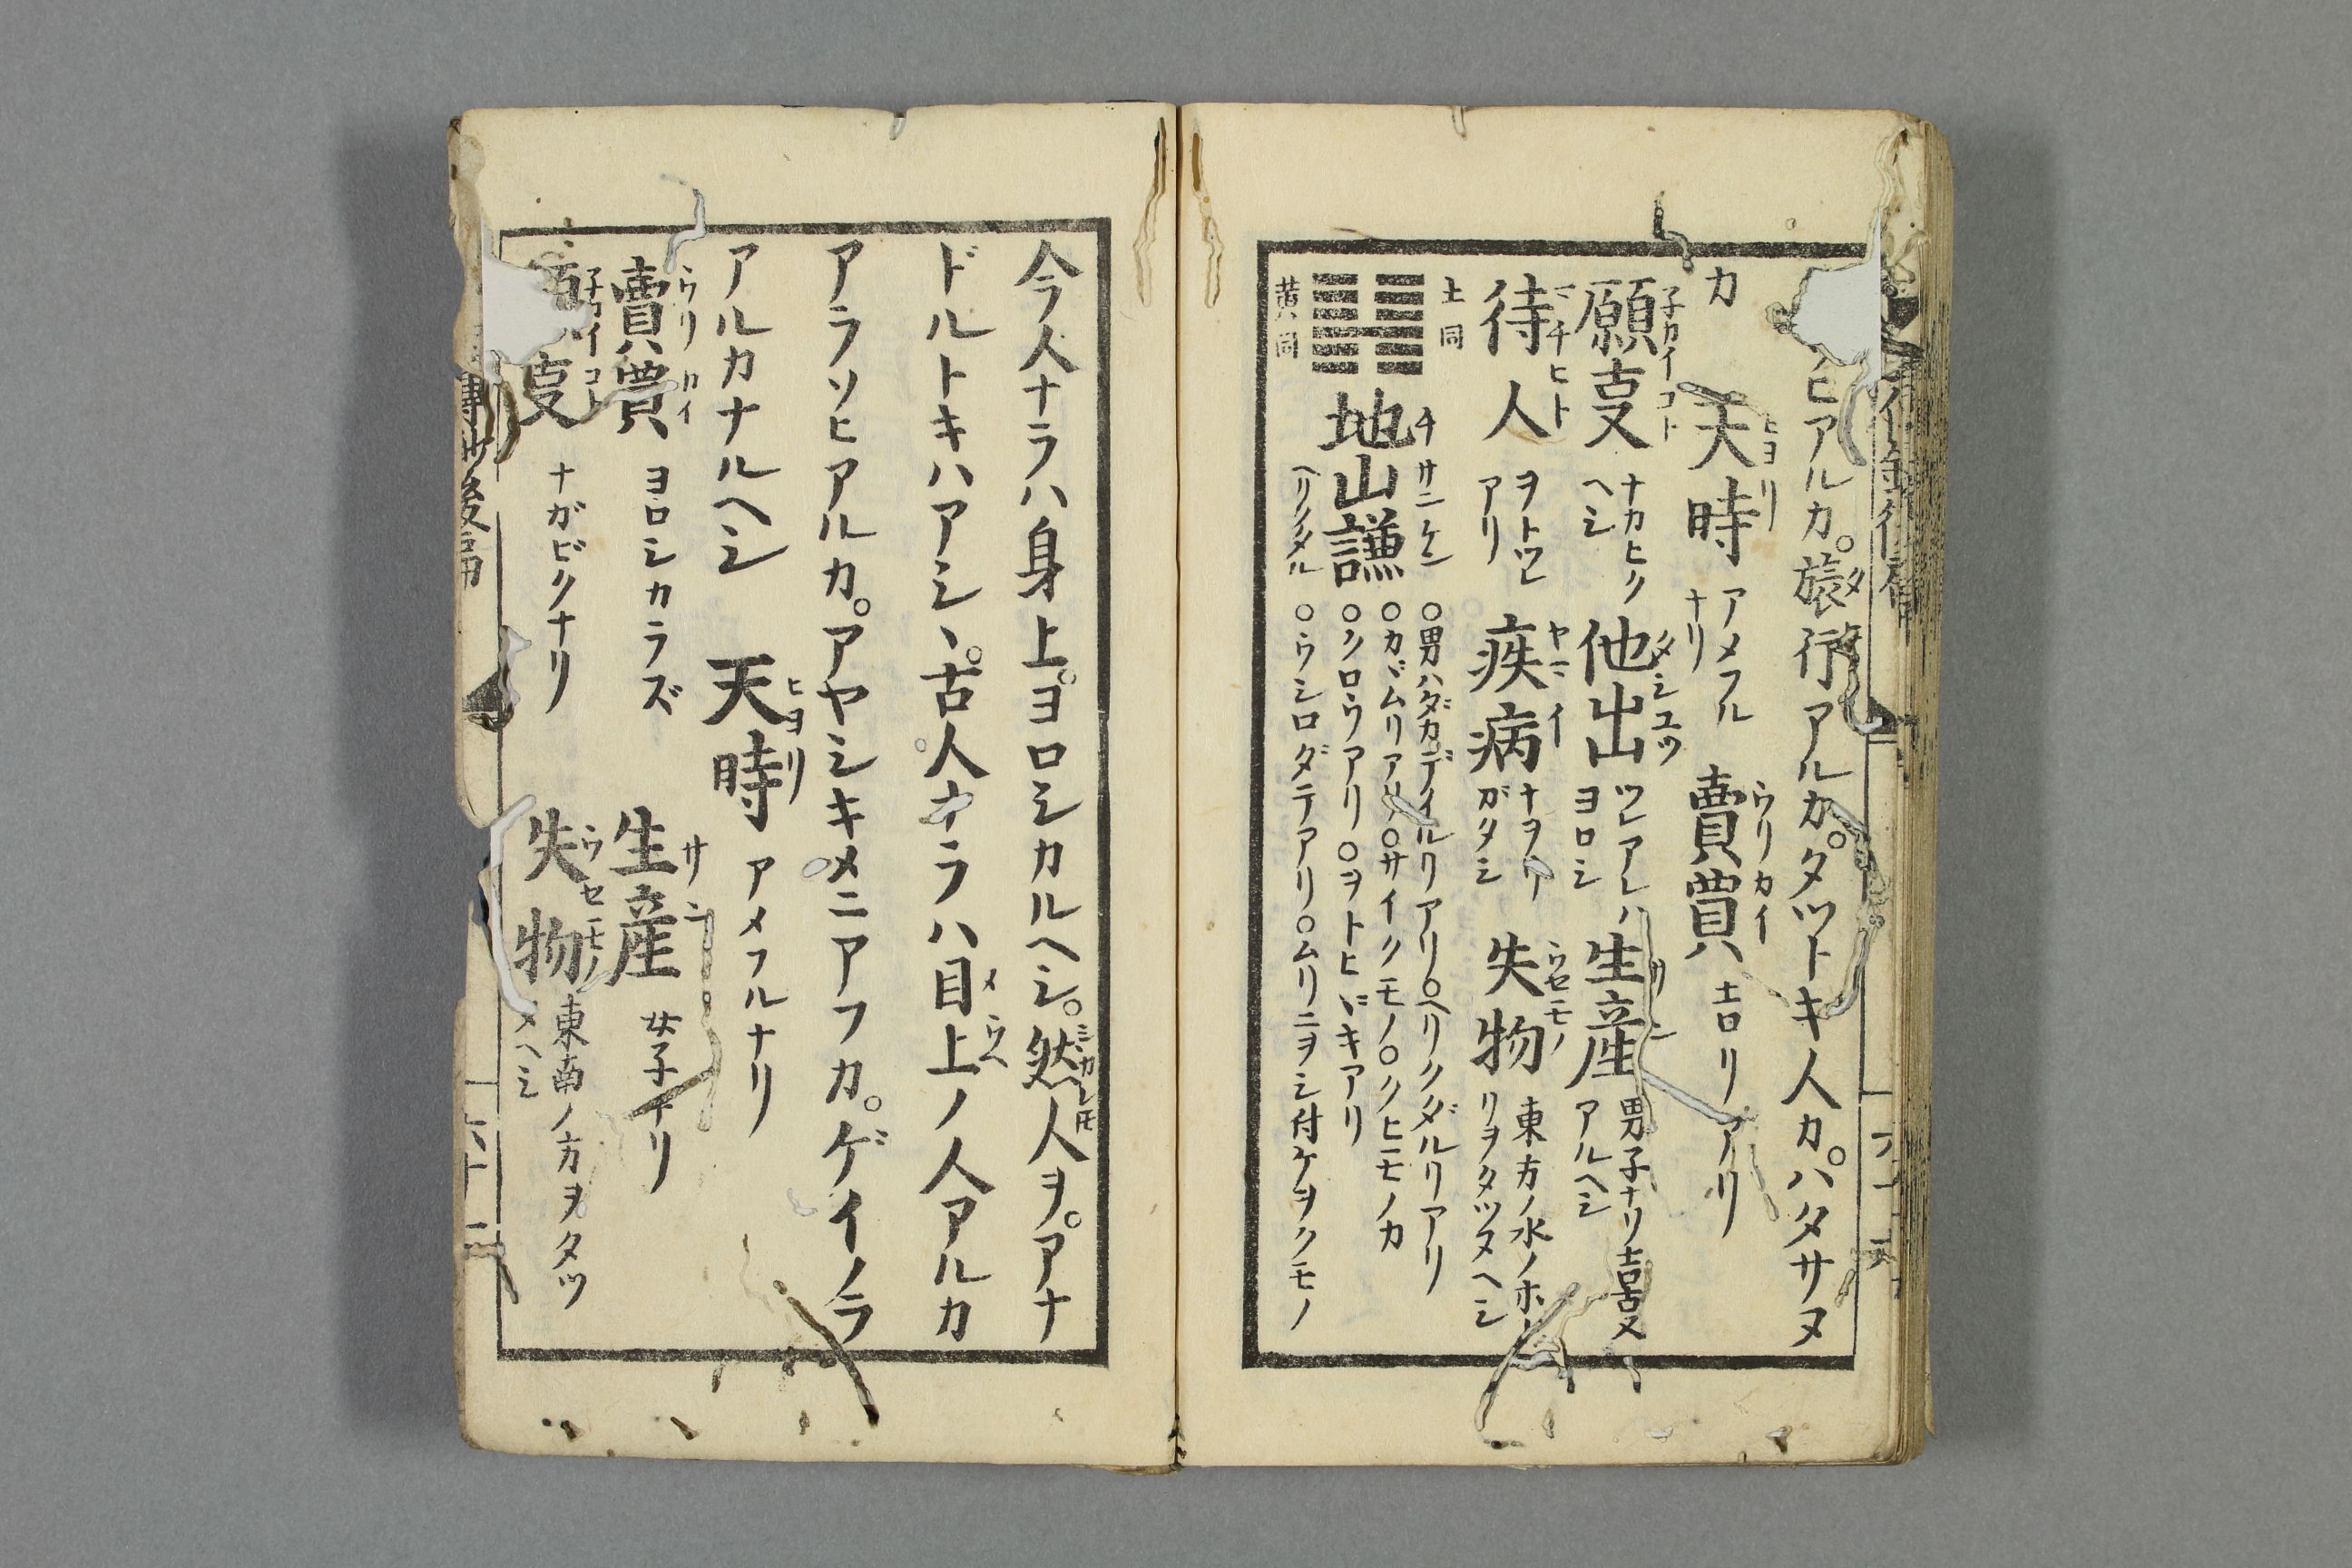 ヒアルカ。旅行アルカ。タツトキ人カ。ハタサヌ
カ 天時 アメフルナリ 賣買 士ロリアリ
願叓 ナカヒクヘシ 他出 ツレアレハヨロシ 生産 男子ナリ士吉又アルヘシ
待人 ヲトツレアリ 疾病 ナヲリガタシ 失物 東方ノ水ノホリヲタツヌヘシ
土同
䷎䷎ 地山謙
黄同
チサンケン
ヘリクダル
○男ハダカデイルリアリ○ヘリクダルリアリ
○カヾムリアリ○サイクモノ○クヒモノカ
○クロウアリ○ヲトヒヾキアリ
○ウシロダテアリ○ムリニヲシ付ケヲクモノ
今人ナラハ身上。ヨロシカルヘシ。然人ヲ。アナ
ドルトキハアシヽ。古人ナラハ目上ノ人アルカ
アラソヒアルカ。アヤシキメニアフカ。ゲイノラ
アルカナルヘシ 天時 アメフルナリ
賣買 ヨロシカラズ 生産 女子ナリ
叓 ナガビクナリ 失物 東南ノ方ヲタツ
メヘシ
後篇
六十二